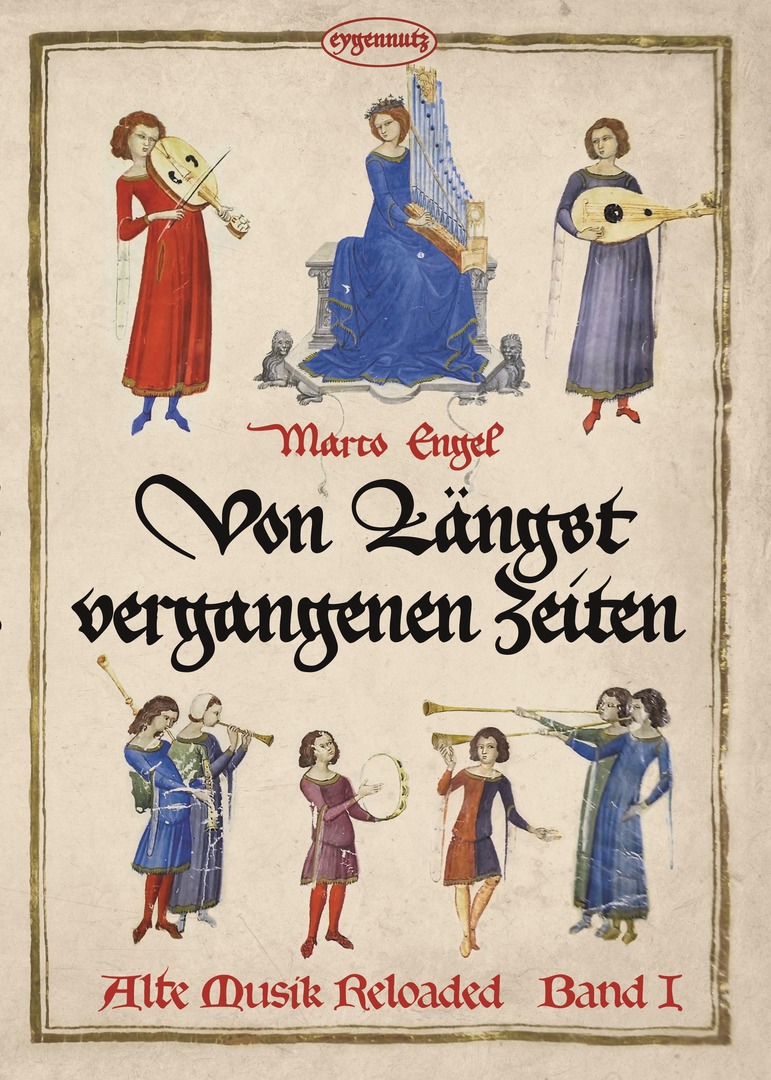 eygennutz
Marco Engel
Von Längst
vergangenen Zeiten
Alte Musik Reloaded Band I